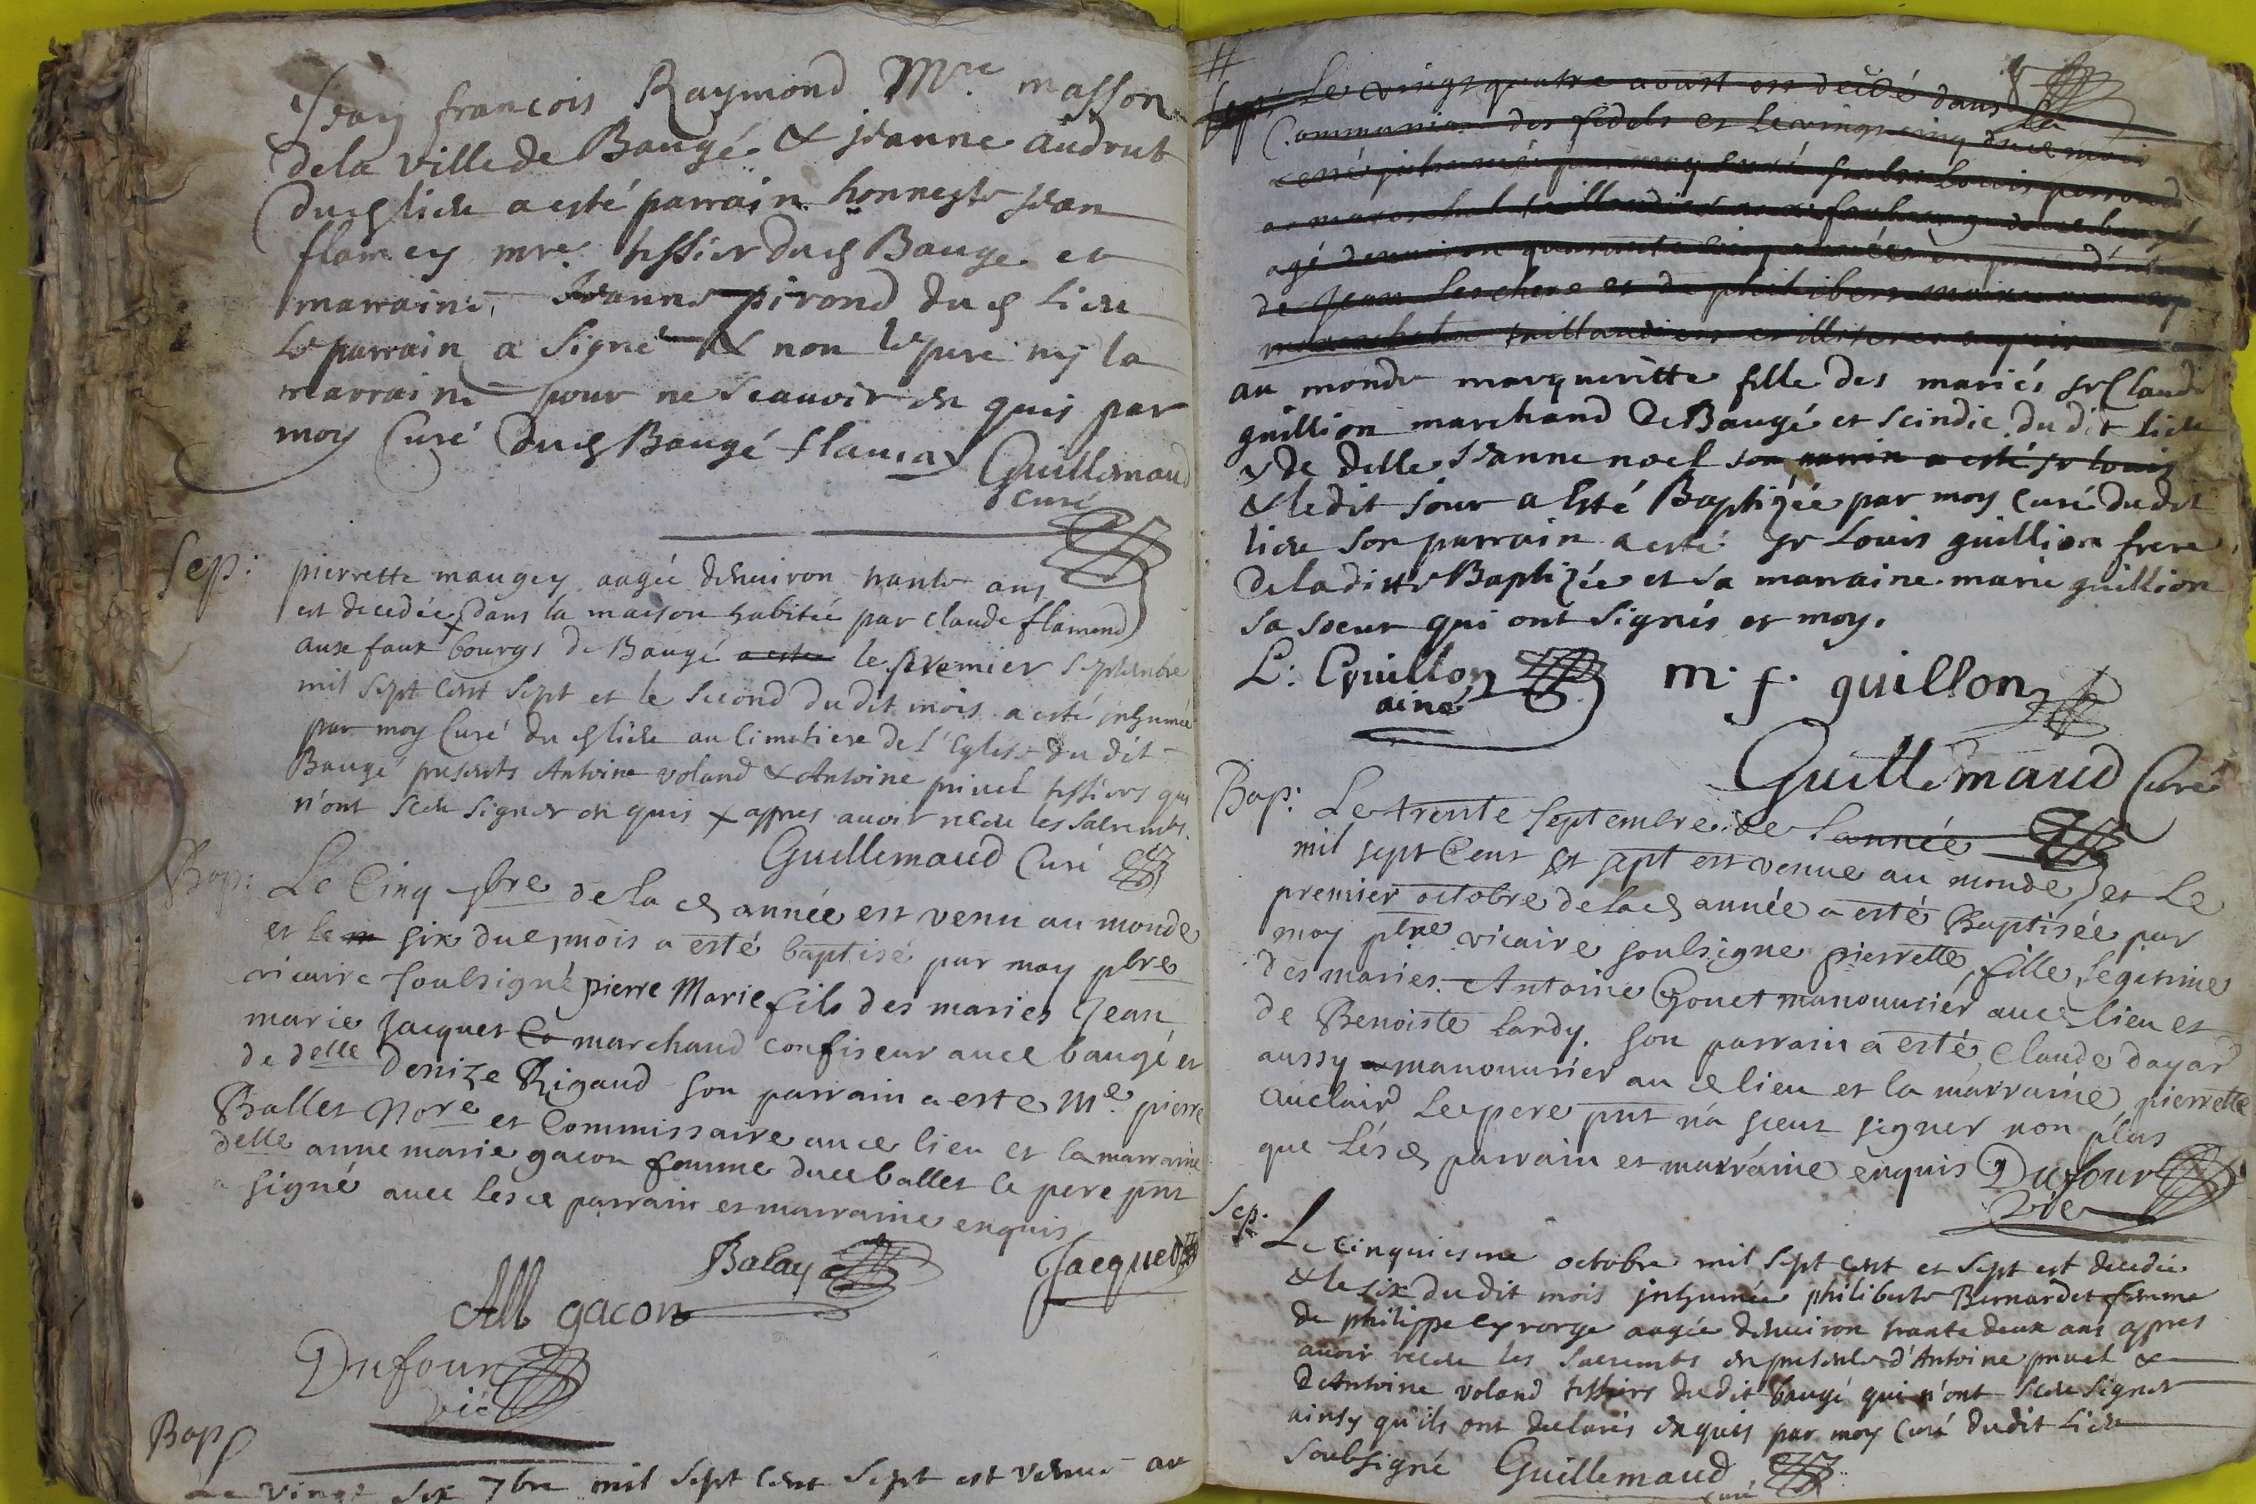 Jean françois Raymond Mre masson
de la ville de Baugé & jeanne Audrut
dud lieu a esté parrain honneste jean
flamey mre tissier dud Baugé et
marraine Jeanne pirond dud lieu
Le parrain a signé & non le pere ny la
marraine pour ne scauoir enquis par
moy Curé dud Baugé flamey Guillemaud
Curé
Sep: pierrette maugey aagée denuiron trante ans
est decedée dans la maison habitée par claude flamend
aux faux bourgs de Baugé a esté le premier septembre
mil sept cent sept et le second du dit mois a esté inhumée
par moy Curé dud lieu au Cimetiere de l'Eglise du dit
Baugé presents Antoine voland & Antoine priuel tissiers qui
n'ont sceu signer enquis x appres auoir receu les sacremts.
Guillemaud Curé
Bap: Le Cinq 7bre de la d année est venu au monde
et le six dud mois a esté baptisé par moy pbre
vicaire soubsigné pierre Marie fils des maries Jean
marie Jacquet marchand confiseur aud baugé et
de delle Denize Rigaud son parrain a esté Me pierre
Ballet Nore et Commissaire aud lieu et la marraine
delle anne marie gacon femme dud ballet le pere pnt
a signé auec les d parrain et marraine enquis
Balay Jacquet
AM gacon
Dufour
vic
Bap
Le vingt six 7bre mil sept cent sept est venue au
8
Sep: Le vingt quatre aoust est decedé dans la
Communion des fideles et le vingt cinq dud mois
a esté inhumé par moy curé Louis perroud
mareschal taillandier faubourg dud baugé
agé denuiron quarante cinq années en presence
de Jean Leschere et de philibert
taillandiers et illiteres enquis
au monde margueritte fille des mariés sr Claude
guillion marchand de Baugé et scindic du dit lieu
& de delle Jeanne noel son parrain a esté sr louis
& le dit jour a Esté Baptizée par moy Curé du dit
lieu son parrain a esté sr Louis guillion frere
de la ditte Baptizée et sa marraine marie guillion
sa soeur qui ont signés et moy.
L: Guillon m. f. guillon
ainé
Guillemaud Curé
Bap: Le trente septembre de lannée
mil sept Cent et sept est venue au monde et Le
premier octobre de la d année a esté Baptisée par
moy pbre vicaire soubsigne pierrette fille legitime
des maries Antoine Gonet manouurier aud lieu et
de Benoiste Lardy. son parrain a esté Claude dayard
aussy manouurier au d lieu et la marraine pierrette
Auclaird Le pere pnt n'a sceut signer non plus
que les d parrain et marraine enquis Dufour
Vic
Sep. Le cinquiesme octobre mil sept cent et sept est decedée
& le six du dit mois inhumée philiberte Bernardet femme
de philippe Cyrorge aagée denuiron trante deux ans appres
auoir receu les sacremts en presence d'Antoine priuel &
d'Antoine voland tissiers du dit baugé qui n'ont sceu signer
ainsy qu'ils ont declarés enquis par moy Curé du dit Lieu
soubsigné Guillemaud
curé